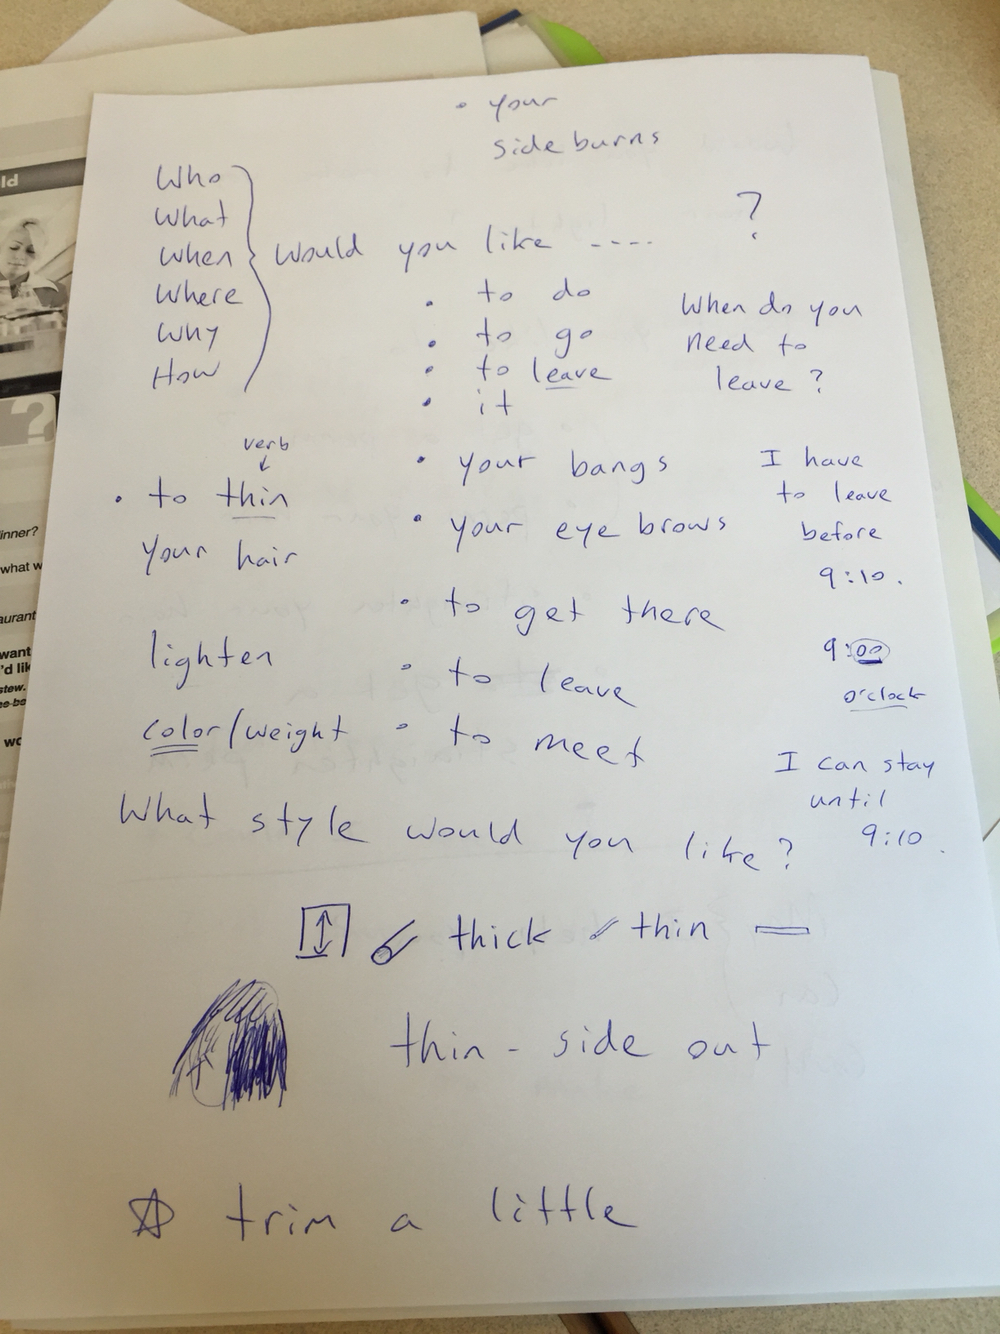 • your
side burns
Who
What
When
Where
Why
How
Would you like ---- ?
• to do
• to go
• to leave
• it
• your bangs
• your eye brows
• to get there
• to leave
• to meet
When do you
need to
leave ?
I have
to leave
before
9:10.
9:00
o'clock
I can stay
until
9:10.
verb
• to thin
your hair
lighten
color/weight
What style would you like?
thick thin
thin - side out
trim a little
ld
?
inner?
what w
aurant
want
'd lik
stew.
wo